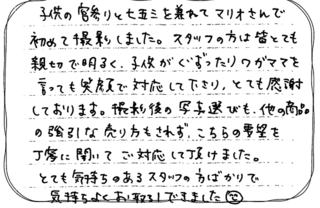 子供の宮参りと七五三を兼ねてマリオさんで
初めて撮影しました。スタッフの方は皆とても
親切で明るく、子供がぐずったりワガママを
言っても笑顔で対応して下さり、とても感謝
しております。撮影後の写真選びも、他の商品
の強引な売り方もされず、こちらの要望を
丁寧に聞いてご対応して頂けました。
とても気持ちのあるスタッフの方ばかりで
気持ちよくお取引できました